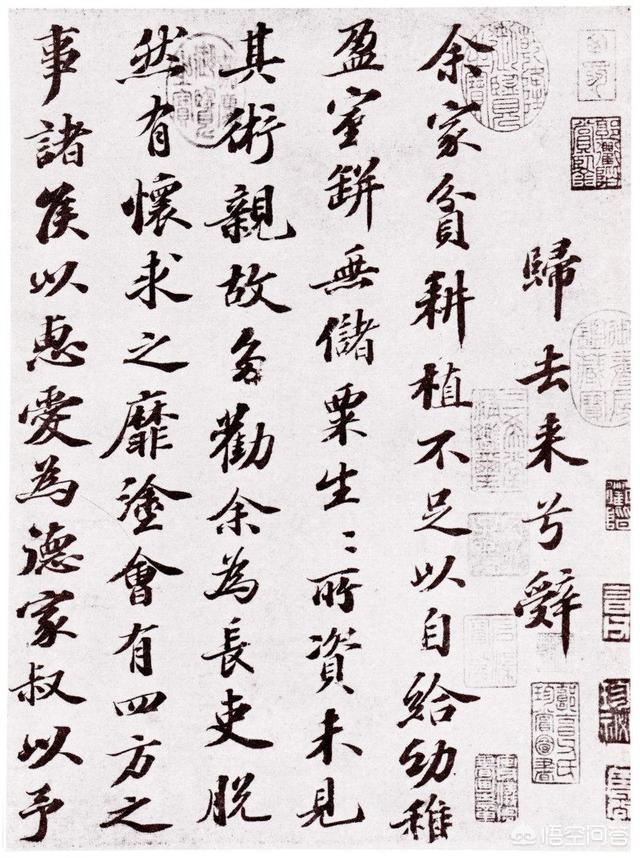 歸去来兮辭
余家貧耕植不足以自給幼稚
盈室缾無儲粟生〻所資未見
其術親故多勸余為長吏脱
然有懷求之靡塗會有四方之
事諸侯以惠愛為德家叔以予
悟空问答